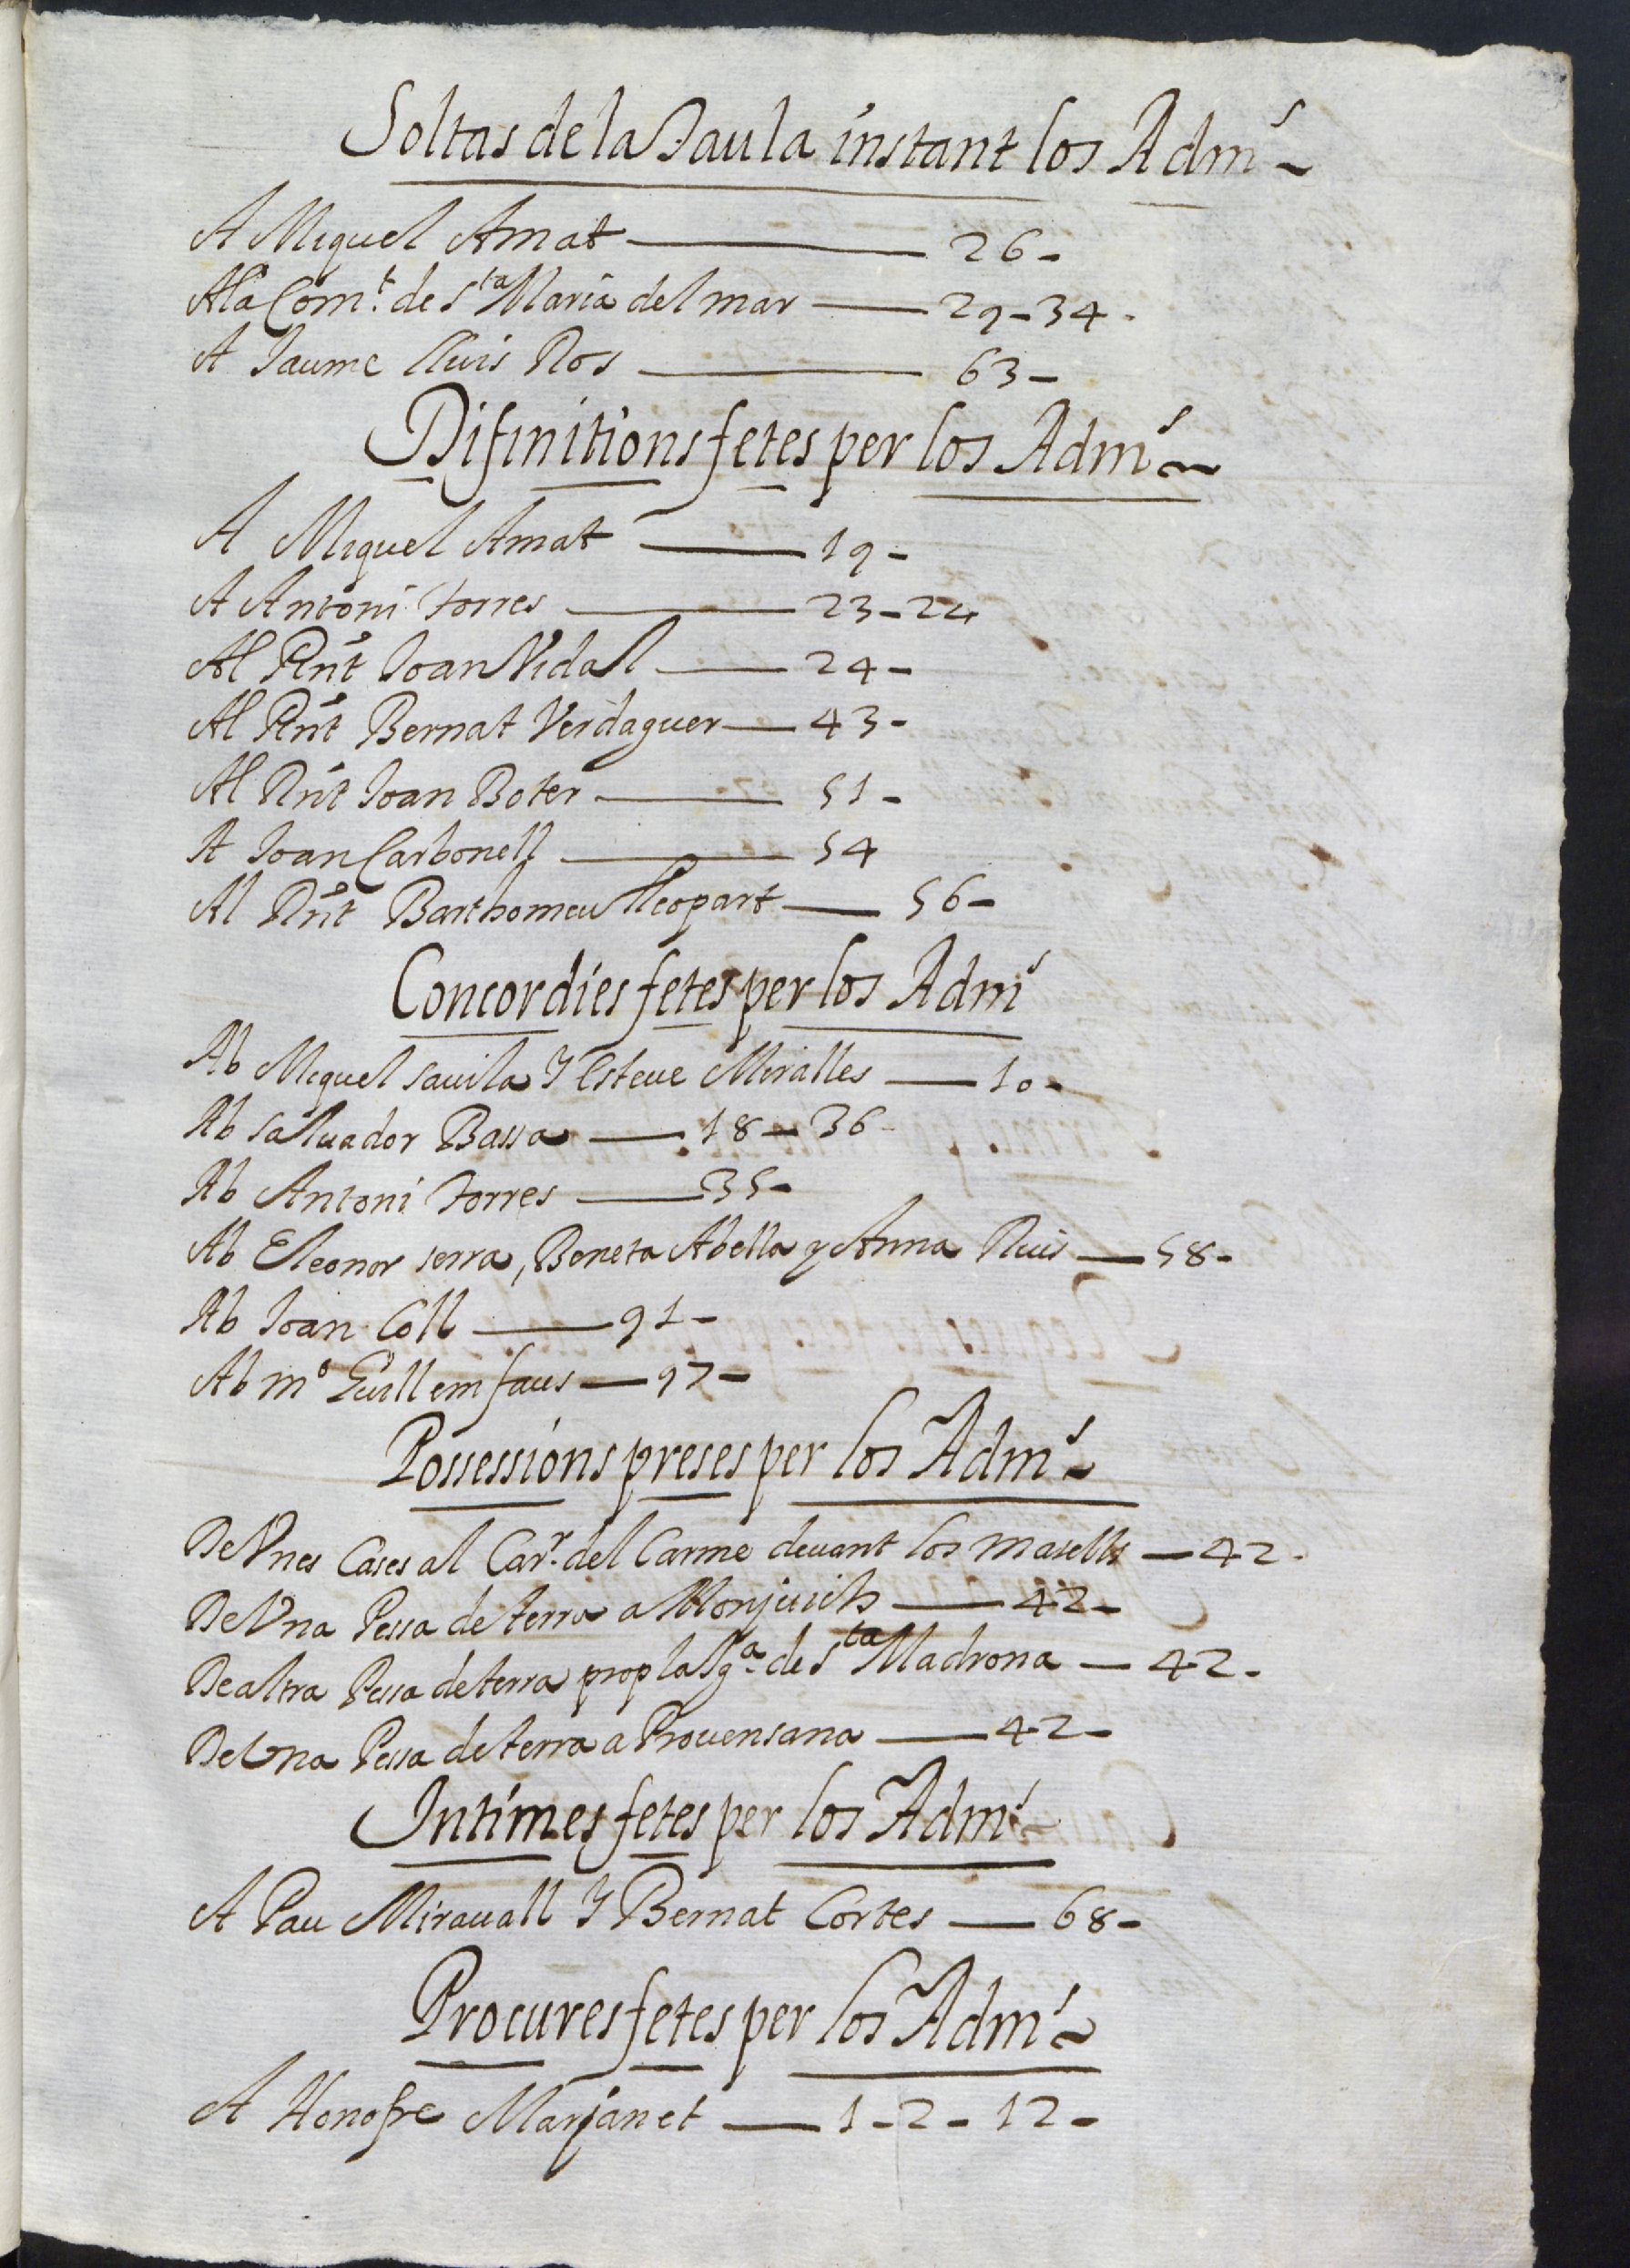 Soltas de la Taula instant los Adm.^s
A Miquel Amat — 26 -
A la Com.^t de S^ta Maria del mar — 29 - 34 -
A Jaume Lluis Ros — 63 -
Difinitions fetes per los Adm^s
A Miquel Amat — 19 -
A Antoni Torres — 23 - 24
Al Rnt Joan Vidal — 24 -
Al Rnt Bernat Verdaguer — 43 -
Al Rnt Joan Boter — 51 -
A Joan Carbonell — 54
Al Rnt Barthomeu Lleopart — 56 -
Concordies fetes per los Adm^s
Ab Miquel savila Y Esteve Miralles — 10 -
Ab salvador Bassa — 18 - 36 -
Ab Antoni Torres — 35 -
Ab Eleonor serra, Beneta Abella y Anna — 58 -
Ab Joan Coll — 91 -
Ab m^o Guillem faus — 97 -
Possessions preses per los Adm^s
De Vnes Cases al Car^r. del Carme devant los masells — 42 -
De Vna Pessa de terra a Monjuich — 42 -
De altra Pessa de terra prop la Sg^a. de S^ta Madrona — 42 -
De Vna Pessa de terra a Provensana — 42 -
Intimes fetes per los Adm^s
A Pau Miravall Y Bernat Cortes — 68 -
Procures fetes per los Adm^s
A Honofre Marjanet — 1 - 2 - 12 -